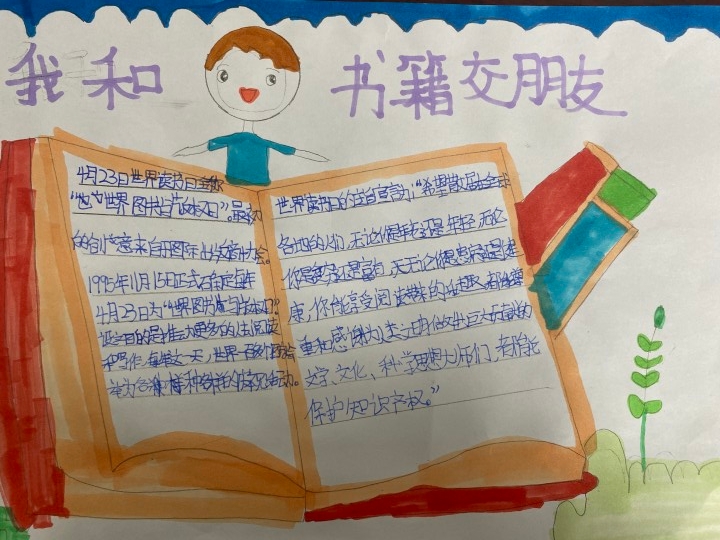 我和 书籍交朋友
4月23日世界读书日全称
"世界图书与版权日"。最初
的创意来自于国际出版商协会。
1995年11月15日正式确定每年
4月23日为"世界图书与版权日"
设立目的是推动更多的人去阅读
和写作,每年这一天,世界一百多个国家
举办各种各样的
世界读书日的主旨宣言为:"希望散居全球
各地的人们,无论你是年老还是年轻,无论
你是贫穷还是富有,无论你是患病还是健
康,你都能享受阅读带来的乐趣,都能尊
重和感谢为人类文明做出巨大贡献的
文学、文化、科学思想大师们,都能
保护知识产权。"